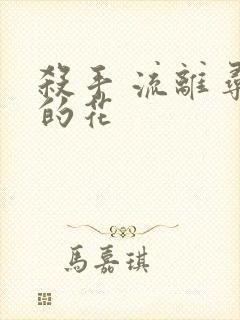 殺手 流離
的花
馬嘉琪